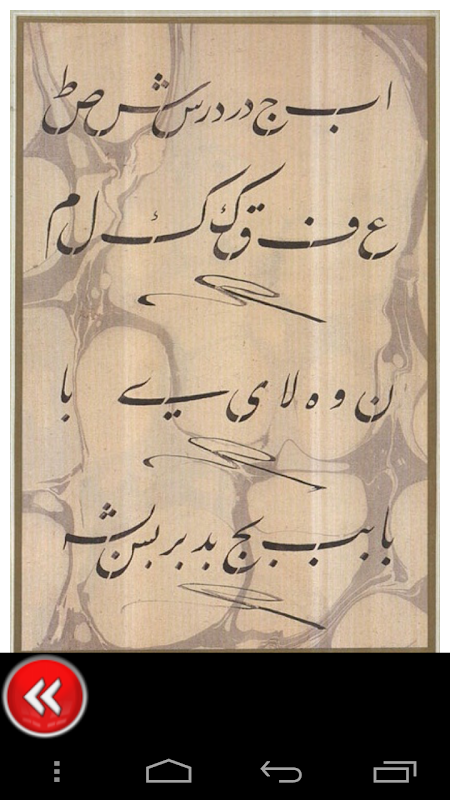 ا ب ج د ر د ر س ش ص ط
ع ف ق ک ک ل م
ن و ه لا ی ے با
با بب بج بد بر بس بش